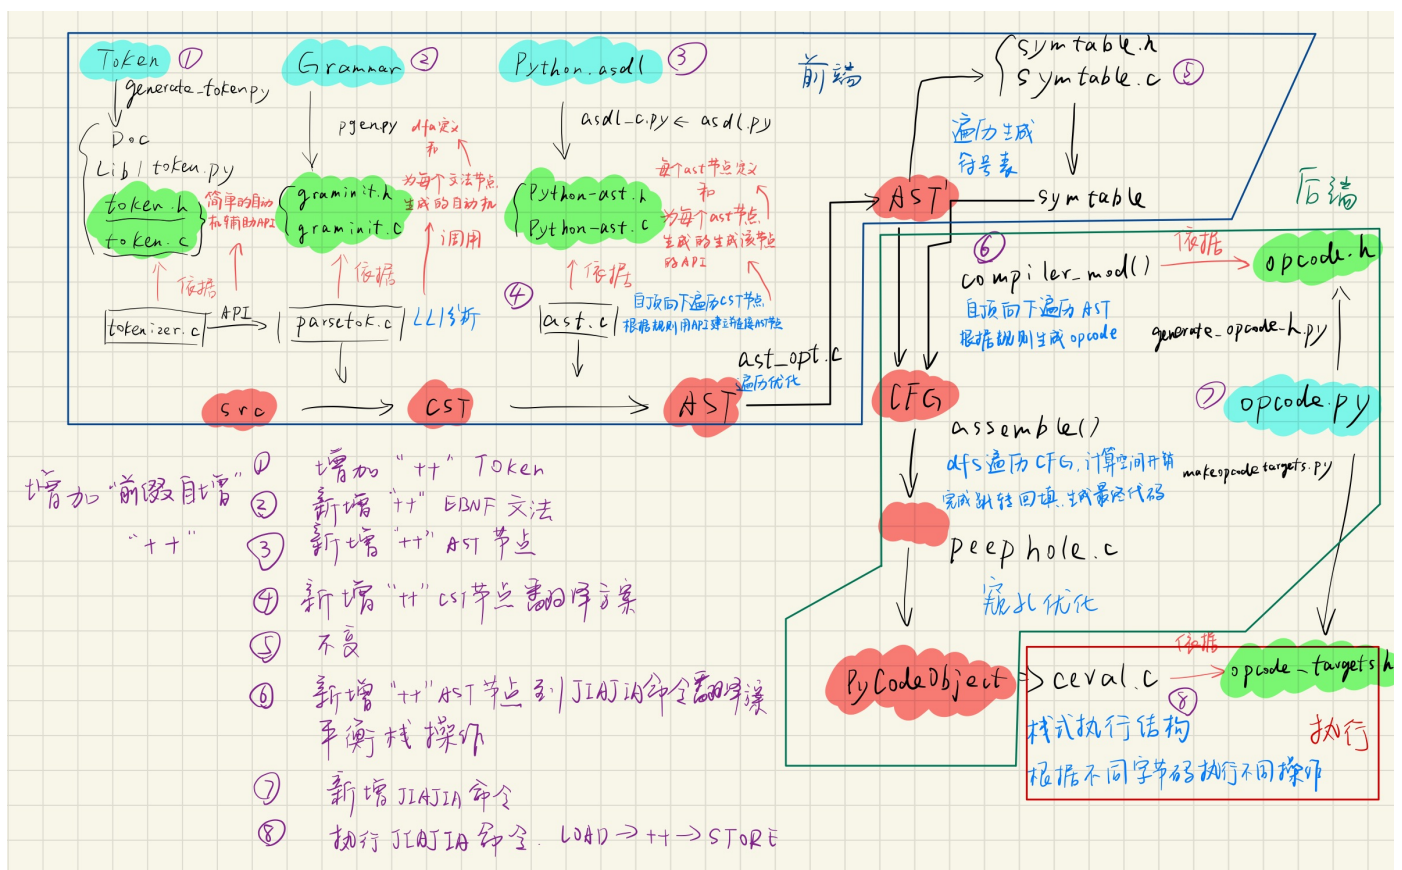 Token ①
generate_token.py
Doc
Lib / token.py
token.h
token.c
简单的自动
机辅助API
依据
tokenizer.c
API
Grammar ②
pgen.py
dfa定义
和
为每个文法节点
生成的自动机
调用
graminit.h
graminit.c
依据
parsetok.c
LL1分析
Python.asdl ③
asdl_c.py ← asdl.py
Python-ast.h
Python-ast.c
每个ast节点定义
和
为每个ast节点
生成的生成该节点
的API
依据
④
ast.c
自顶向下遍历CST节点
根据规则用API建立并连接AST节点
src
CST
AST
ast_opt.c
遍历优化
前端
symtable.h
symtable.c ⑤
遍历生成
符号表
AST'
symtable
后端
⑥
compiler_mod()
依据
opcode.h
自顶向下遍历 AST
根据规则生成 opcode
generate_opcode_h.py
CFG
⑦
opcode.py
assemble()
dfs遍历CFG,计算空间开销
完成跳转回填,生成最终代码
makeopcodetargets.py
peephole.c
窥孔优化
PyCodeObject
ceval.c
依据
opcode_targets.h
⑧
栈式执行结构
执行
根据不同字节码执行不同操作
增加"前缀自增"
"++"
① 增加 "++" Token
② 新增 "++" EBNF 文法
③ 新增 "++" AST 节点
④ 新增 "++" CST节点 翻译方案
⑤ 不变
⑥ 新增 "++" AST 节点 到 JIAJIA命令翻译方案
平衡栈操作
⑦ 新增 JIAJIA 命令
⑧ 执行 JIAJIA 命令. LOAD → ++ → STORE